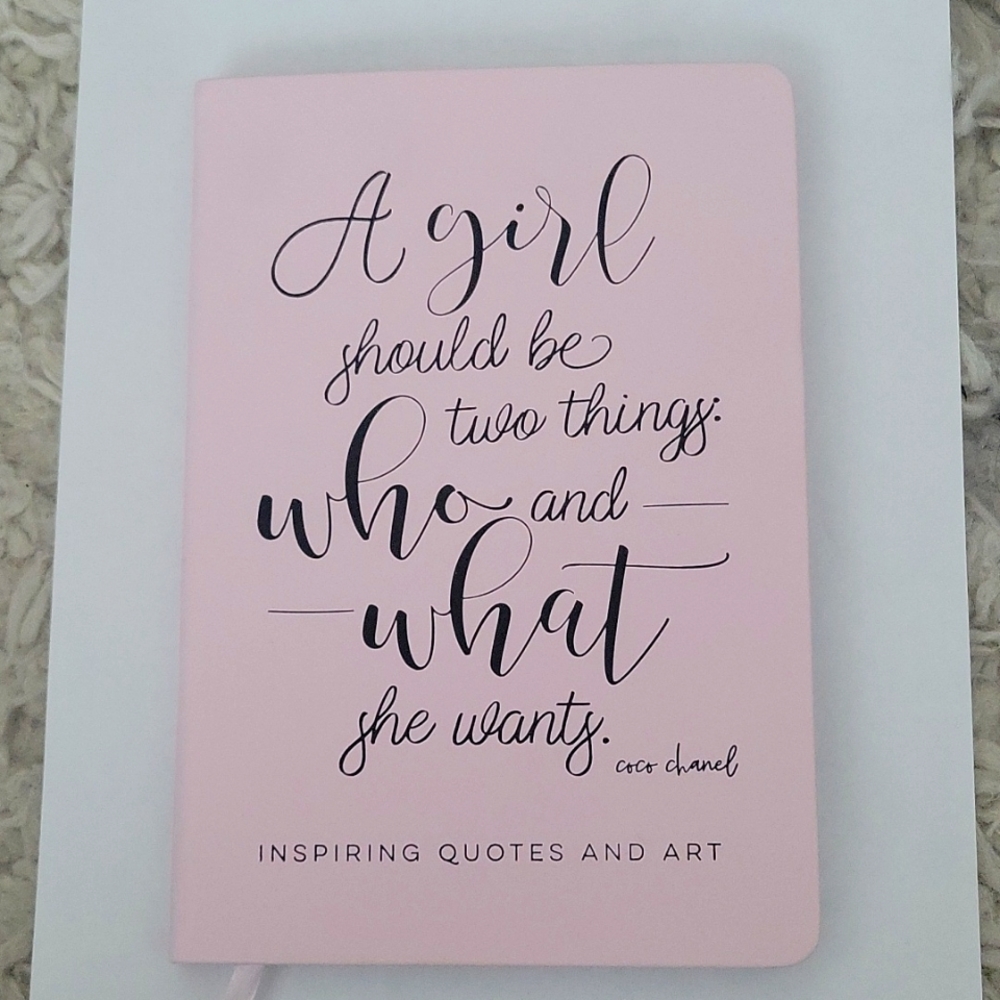 A girl
should be
two things:
who and
what
she wants.
coco chanel
INSPIRING QUOTES AND ART